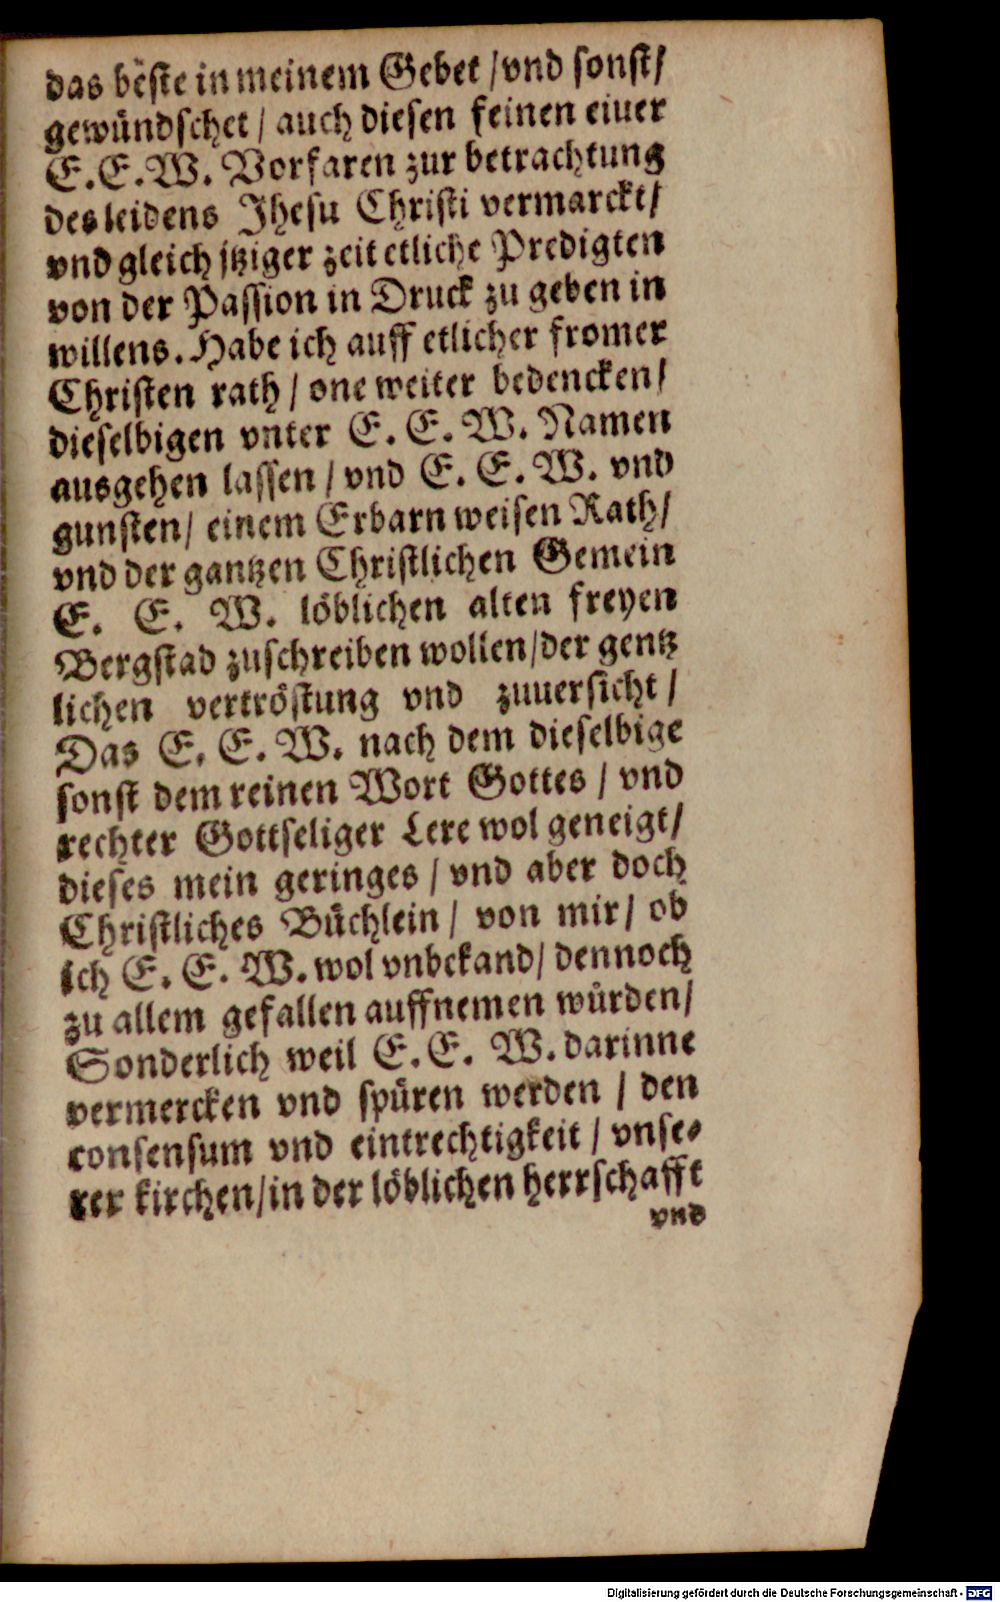 das beste in meinem Gebet / vnd sonst /
gewündschet / auch diesen feinen eiuer
E. E. W. Vorfaren zur betrachtung
des leidens Jhesu Christi vermarckt /
vnd gleich jtziger zeit etliche Predigten
von der Passion in Druck zu geben in
willens. Habe ich auff etlicher fromer
Christen rath / one weiter bedencken /
dieselbigen vnter E. E. W. Namen
ausgehen lassen / vnd E. E. W. vnd
gunsten / einem Erbarn weisen Rath /
vnd der gantzen Christlichen Gemein
E. E. W. löblichen alten freyen
Bergstad zuschreiben wollen / der gentz
lichen vertröstung vnd zuuersicht /
Das E. E. W. nach dem dieselbige
sonst dem reinen Wort Gottes / vnd
rechter Gottseliger Lere wol geneigt /
dieses mein geringes / vnd aber doch
Christliches Büchlein / von mir / ob
ich E. E. W. wol vnbekand / dennoch
zu allem gefallen auffnemen würden /
Sonderlich weil E. E. W. darinne
vermercken vnd spüren werden / den
consensum vnd eintrechtigkeit / vnse⸗
rer kirchen / in der löblichen herrschafft
vnd
Digitalisierung gefördert durch die Deutsche Forschungsgemeinschaft - DFG